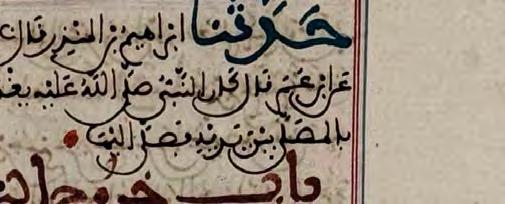 حدثنا ابراهيم بن المنذر قال
عن ابن عمر قال كان النبي صلى الله عليه يغد
بالمصلى بين يديه فيصلي اليها
باب خروج